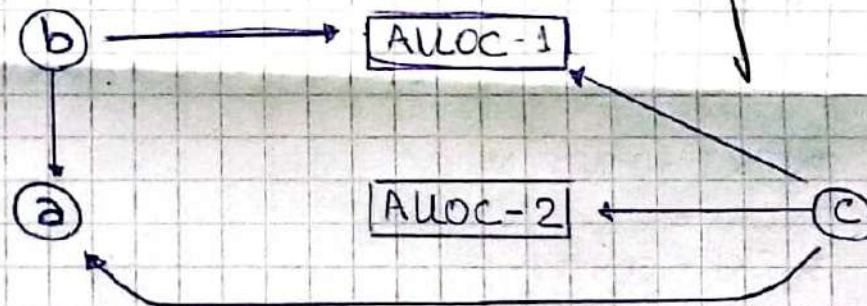 b ALLOC-1
a ALLOC-2 c